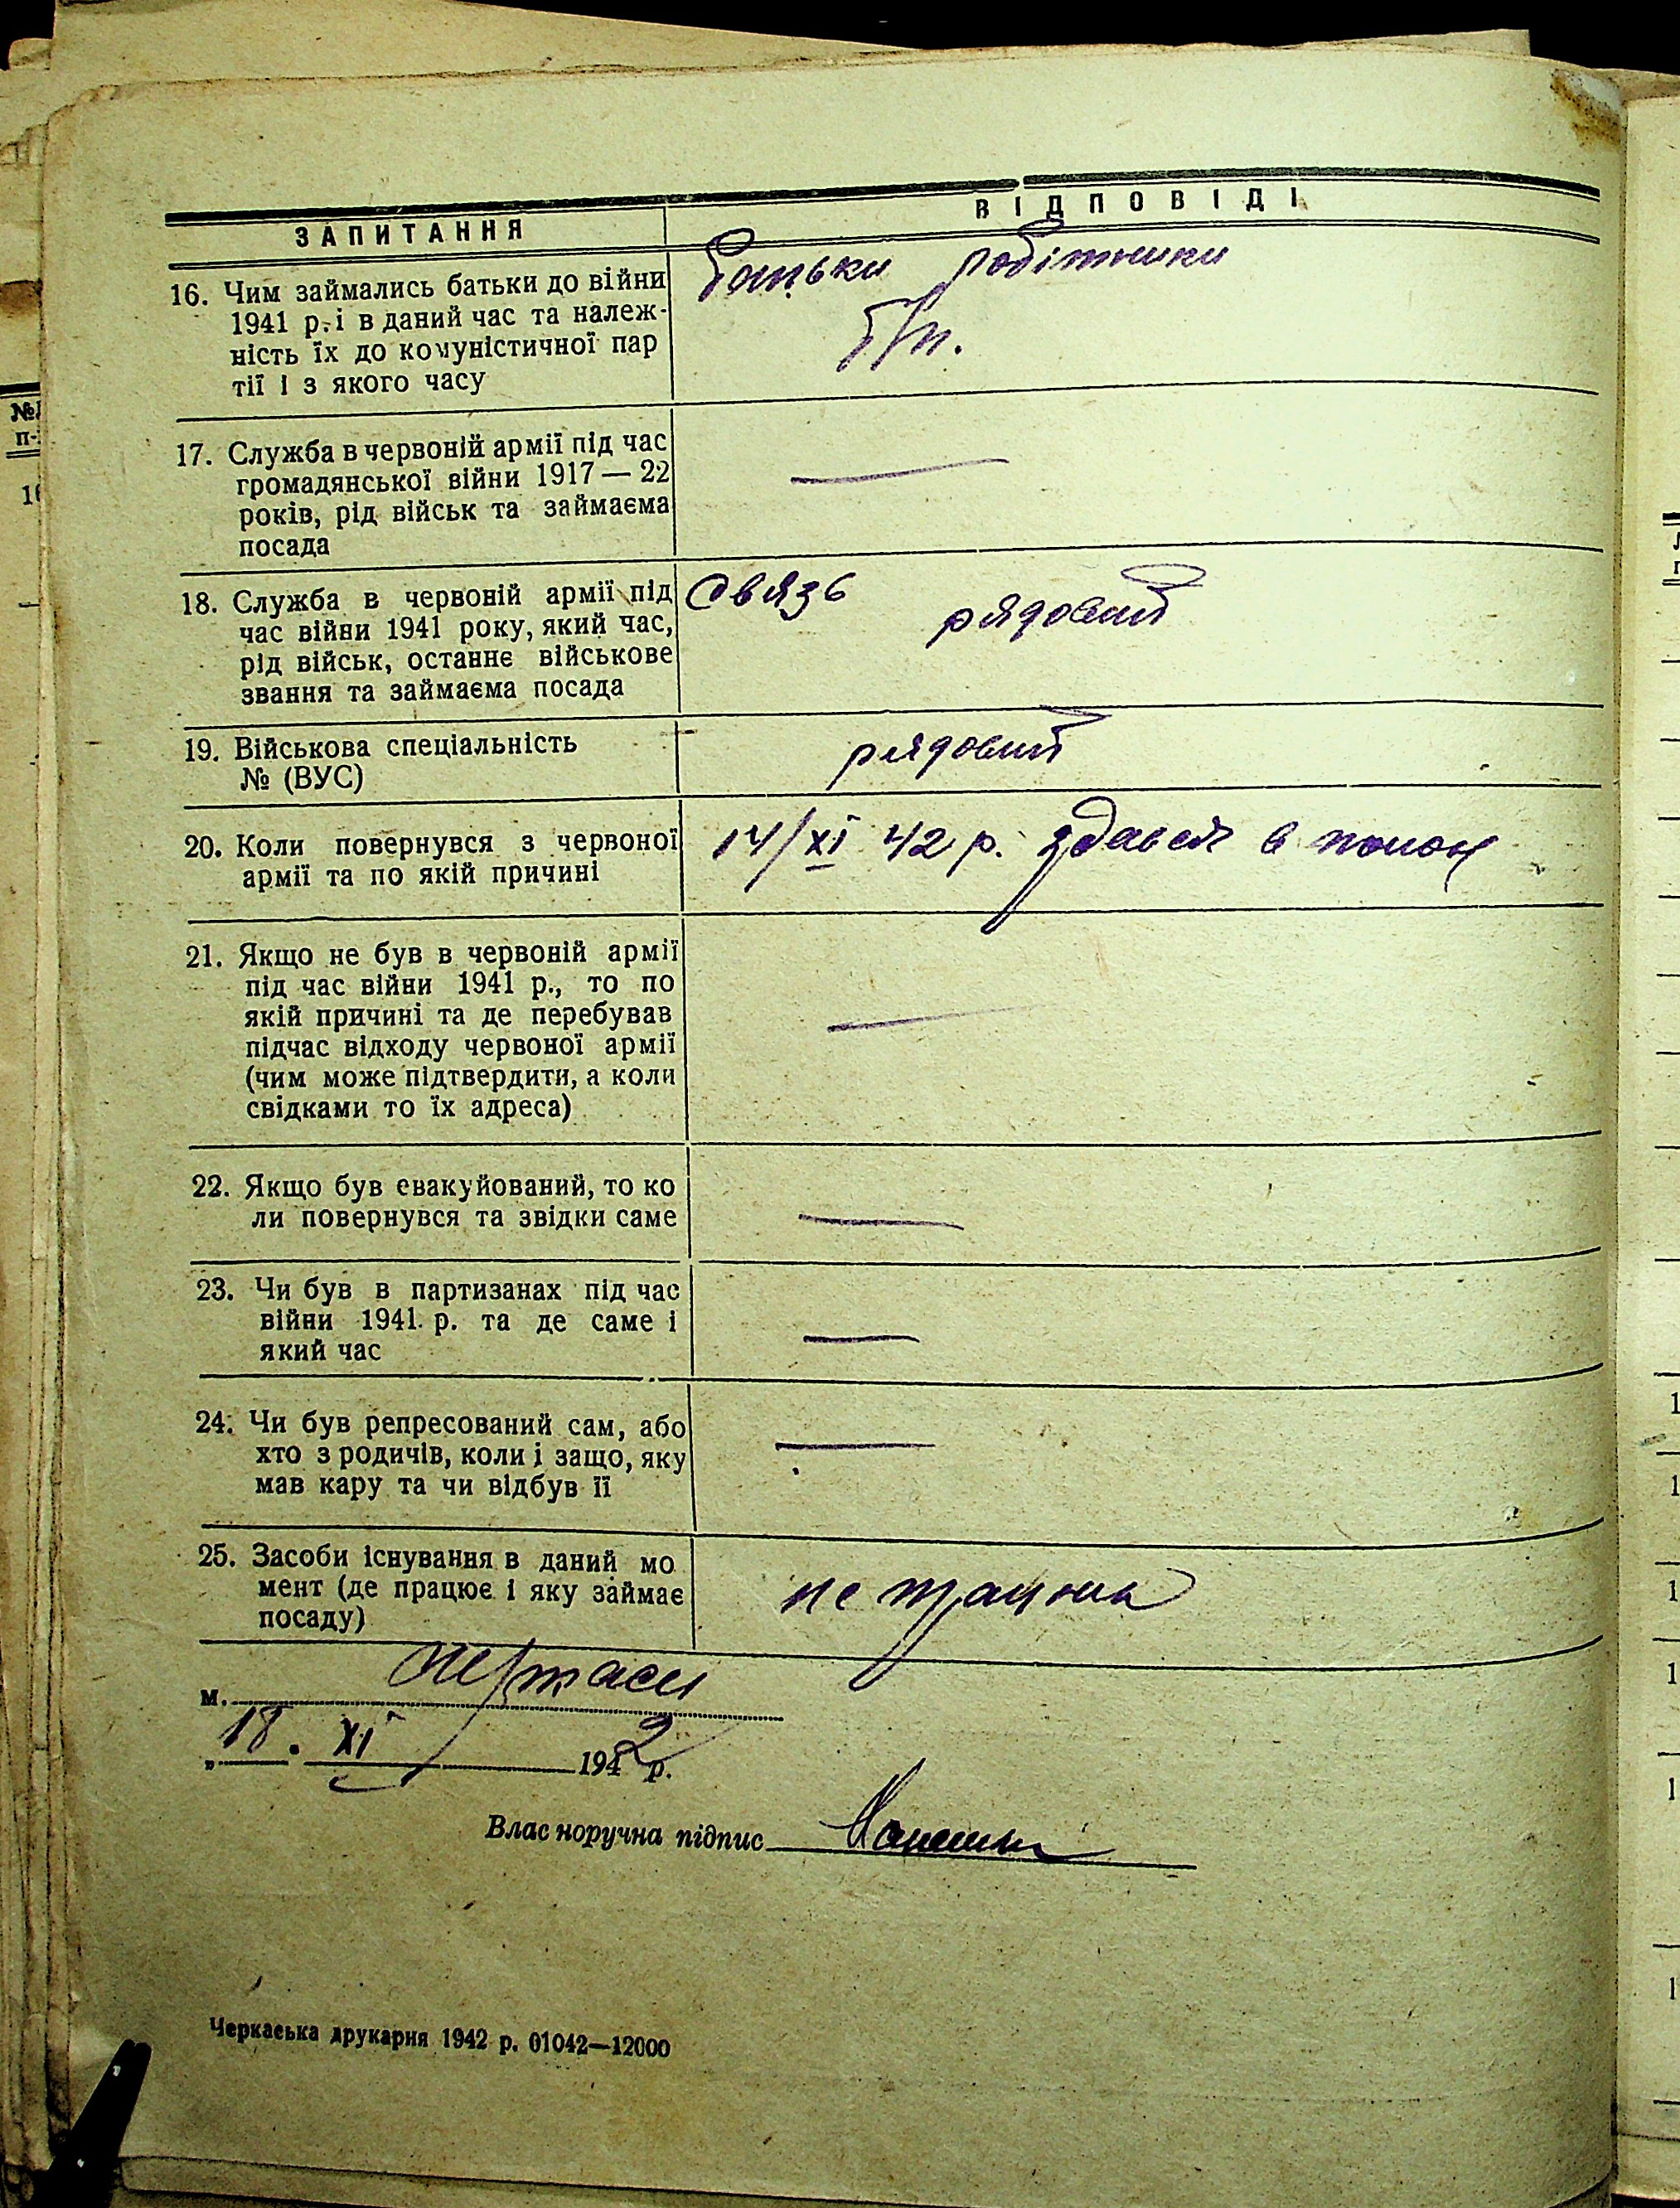 ЗАПИТАННЯ
ВІДПОВІДІ
16. Чим займались батьки до війни
1941 р. і в даний час та належ-
ність їх до комуністичної пар
тії і з якого часу
Батьки робітники
б/п.
17. Служба в червоній армії під час
громадянської війни 1917 — 22
років, рід військ та займаєма
посада
—
18. Служба в червоній армії під
час війни 1941 року, який час,
рід військ, останнє військове
звання та займаєма посада
Связь рядовий
19. Військова спеціальність
№ (ВУС)
рядовий
20. Коли повернувся з червоної
армії та по якій причині
14/XI 42 р. здався в полон
21. Якщо не був в червоній армії
під час війни 1941 р., то по
якій причині та де перебував
підчас відходу червоної армії
(чим може підтвердити, а коли
свідками то їх адреса)
—
22. Якщо був евакуйований, то ко
ли повернувся та звідки саме
—
23. Чи був в партизанах під час
війни 1941 р. та де саме і
який час
—
24. Чи був репресований сам, або
хто з родичів, коли і защо, яку
мав кару та чи відбув її
—
25. Засоби існування в даний мо
мент (де працює і яку займає
посаду)
не працюю
м. Черкаси
„18. XI 1942 р.
Власноручна підпис
Черкаська друкарня 1942 р. 01042—12000
№
п-